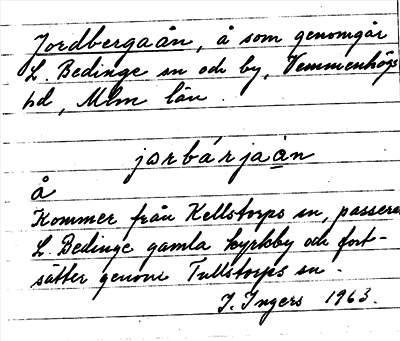 Jordbergaån, å som genomgår
L. Bedinge sn och by, Vemmenhögs
hd, Mlm län.
jɔrbárjaån
å
Kommer från Kellstorps sn, passerar
L. Bedinge gamla kyrkby och fort-
sätter genom Tullstorps sn.
I. Ingers 1963.